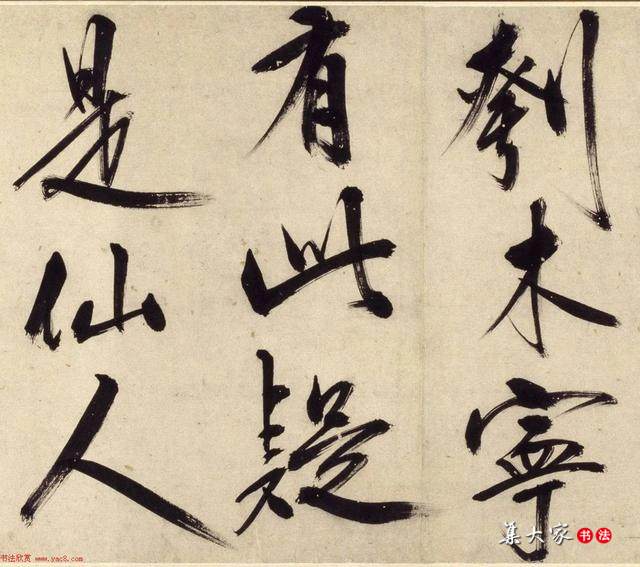 刳木寧
有此疑
是仙人
集大家 书法
书法欣赏 www.yac8.com